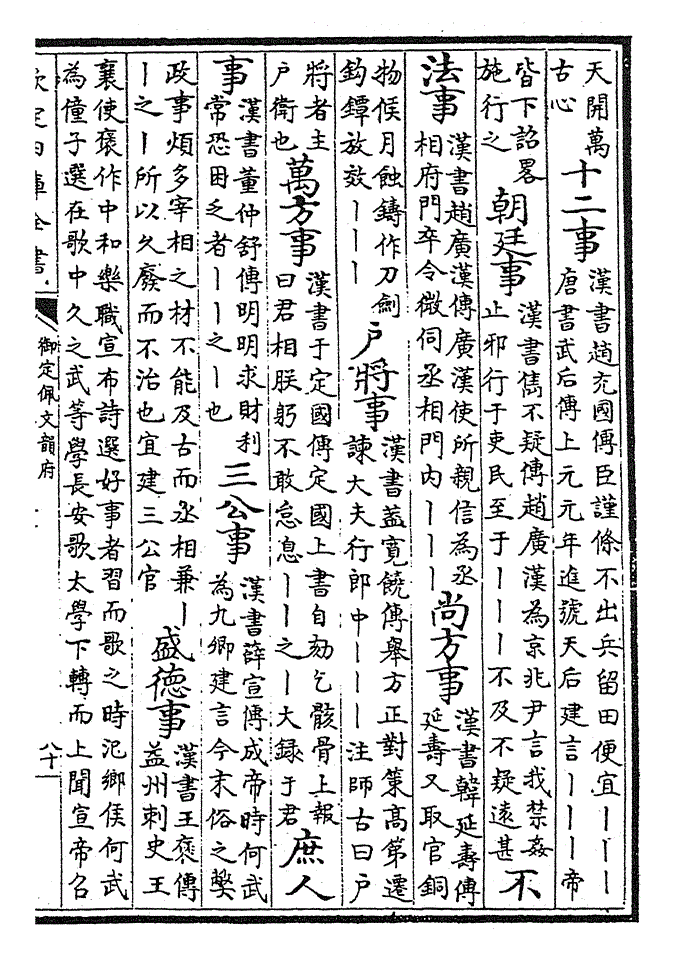 天開萬
古心
十二事
漢書趙充國傳臣謹條不出兵留田便宜丨丨丨
唐書武后傳上元元年進號天后建言丨丨丨帝
皆下詔畧
施行之
朝廷事
漢書雋不疑傳趙廣漢為京兆尹言我禁姦
止邪行于吏民至于丨丨丨不及不疑遠甚
不
法事
漢書趙廣漢傳廣漢使所親信為丞
相府門卒令微伺丞相門内丨丨丨
尚方事
漢書韓延壽傳
延壽又取官銅
物候月蝕鑄作刀劍
鈎鐔放效丨丨丨
户將事
漢書蓋寛饒傳舉方正對策髙第遷
諫大夫行郎中丨丨丨注師古曰户
將者主
户衛也
萬方事
漢書于定國傳定國上書自劾乞骸骨上報
曰君相朕躬不敢怠息丨丨之丨大録于君
庶人
事
漢書董仲舒傳明明求財利
常恐困乏者丨丨之丨也
三公事
漢書薛宣傳成帝時何武
為九卿建言今末俗之獘
政事煩多宰相之材不能及古而丞相兼丨
丨之丨所以久廢而不治也宜建三公官
盛德事
漢書王褒傳
益州刺史王
襄使褒作中和樂職宣布詩選好事者習而歌之時汜鄉侯何武
為僮子選在歌中久之武等學長安歌太學下轉而上聞宣帝召
欽定四庫全書
御定佩文韻府
八十一